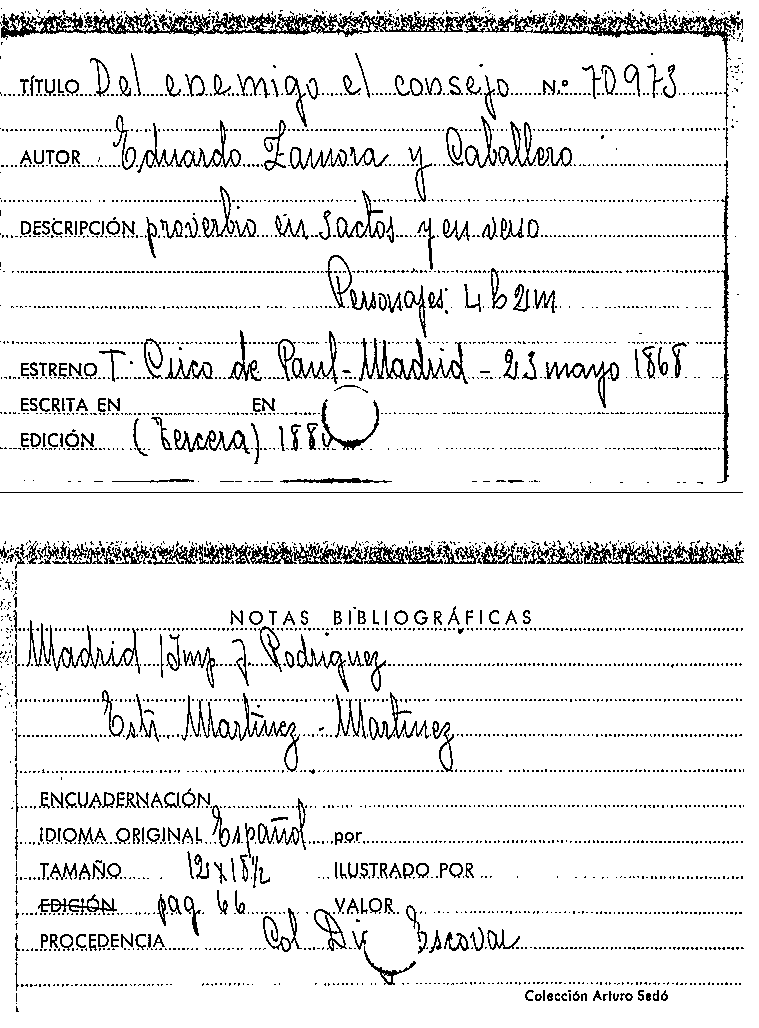 TÍTULO Del enemigo el consejo N.º 70973
AUTOR Eduardo Zamora y Caballero
DESCRIPCIÓN proverbio en 3 actos y en verso
Personajes: 4 h 2 m
ESTRENO T. Circo de Paul - Madrid - 23 mayo 1868
ESCRITA EN EN
EDICIÓN (Tercera)
NOTAS BIBLIOGRÁFICAS
Madrid / Imp J Rodriguez
Martinez - Martinez
ENCUADERNACIÓN
IDIOMA ORIGINAL Español por
TAMAÑO 12 x 18 1/2 ILUSTRADO POR
EDICIÓN pag. 66 VALOR
PROCEDENCIA Col Escovar
Colección Arturo Sedó